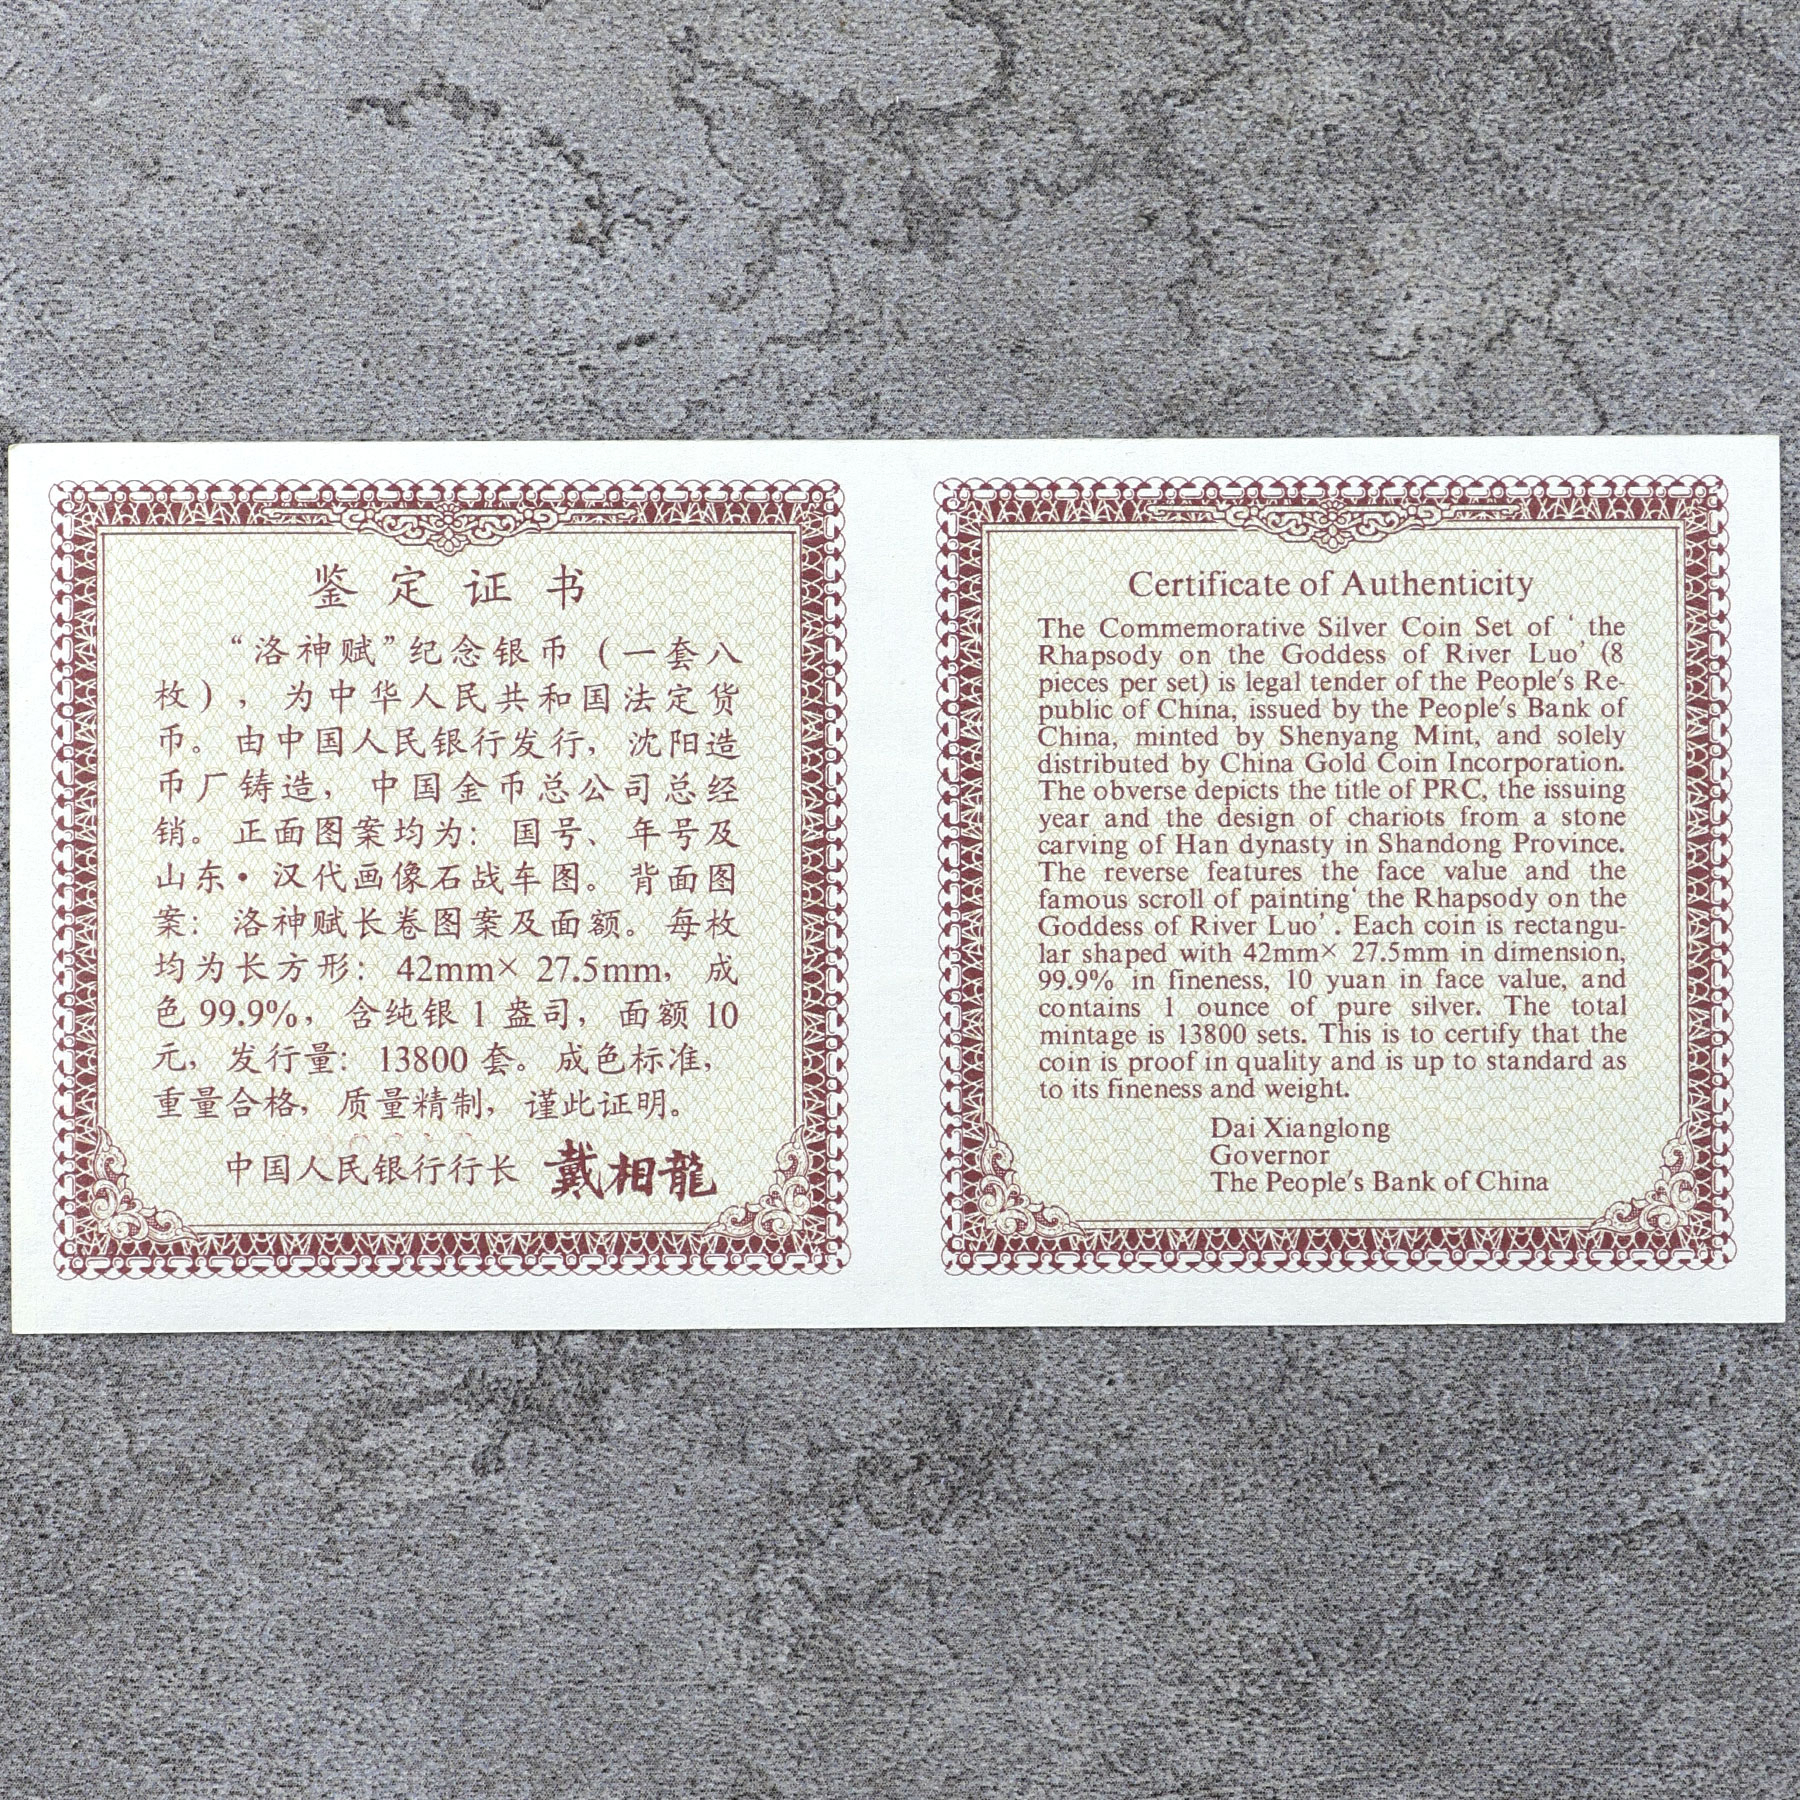 鉴定证书
“洛神赋”纪念银币(一套八
枚),为中华人民共和国法定货
币。由中国人民银行发行,沈阳造
币厂铸造,中国金币总公司总经
销。正面图案均为:国号、年号及
山东·汉代画像石战车图。背面图
案:洛神赋长卷图案及面额。每枚
均为长方形:42mm×27.5mm,成
色99.9%,含纯银1盎司,面额10
元,发行量:13800套。成色标准,
重量合格,质量精制,谨此证明。
中国人民银行行长 戴相龍
Certificate of Authenticity
The Commemorative Silver Coin Set of ‘ the
Rhapsody on the Goddess of River Luo’ (8
pieces per set) is legal tender of the People's Re-
public of China, issued by the People's Bank of
China, minted by Shenyang Mint, and solely
distributed by China Gold Coin Incorporation.
The obverse depicts the title of PRC, the issuing
year and the design of chariots from a stone
carving of Han dynasty in Shandong Province.
The reverse features the face value and the
famous scroll of painting‘ the Rhapsody on the
Goddess of River Luo’ . Each coin is rectangu-
lar shaped with 42mm× 27.5mm in dimension,
99.9% in fineness, 10 yuan in face value, and
contains 1 ounce of pure silver. The total
mintage is 13800 sets. This is to certify that the
coin is proof in quality and is up to standard as
to its fineness and weight.
Dai Xianglong
Governor
The People's Bank of China